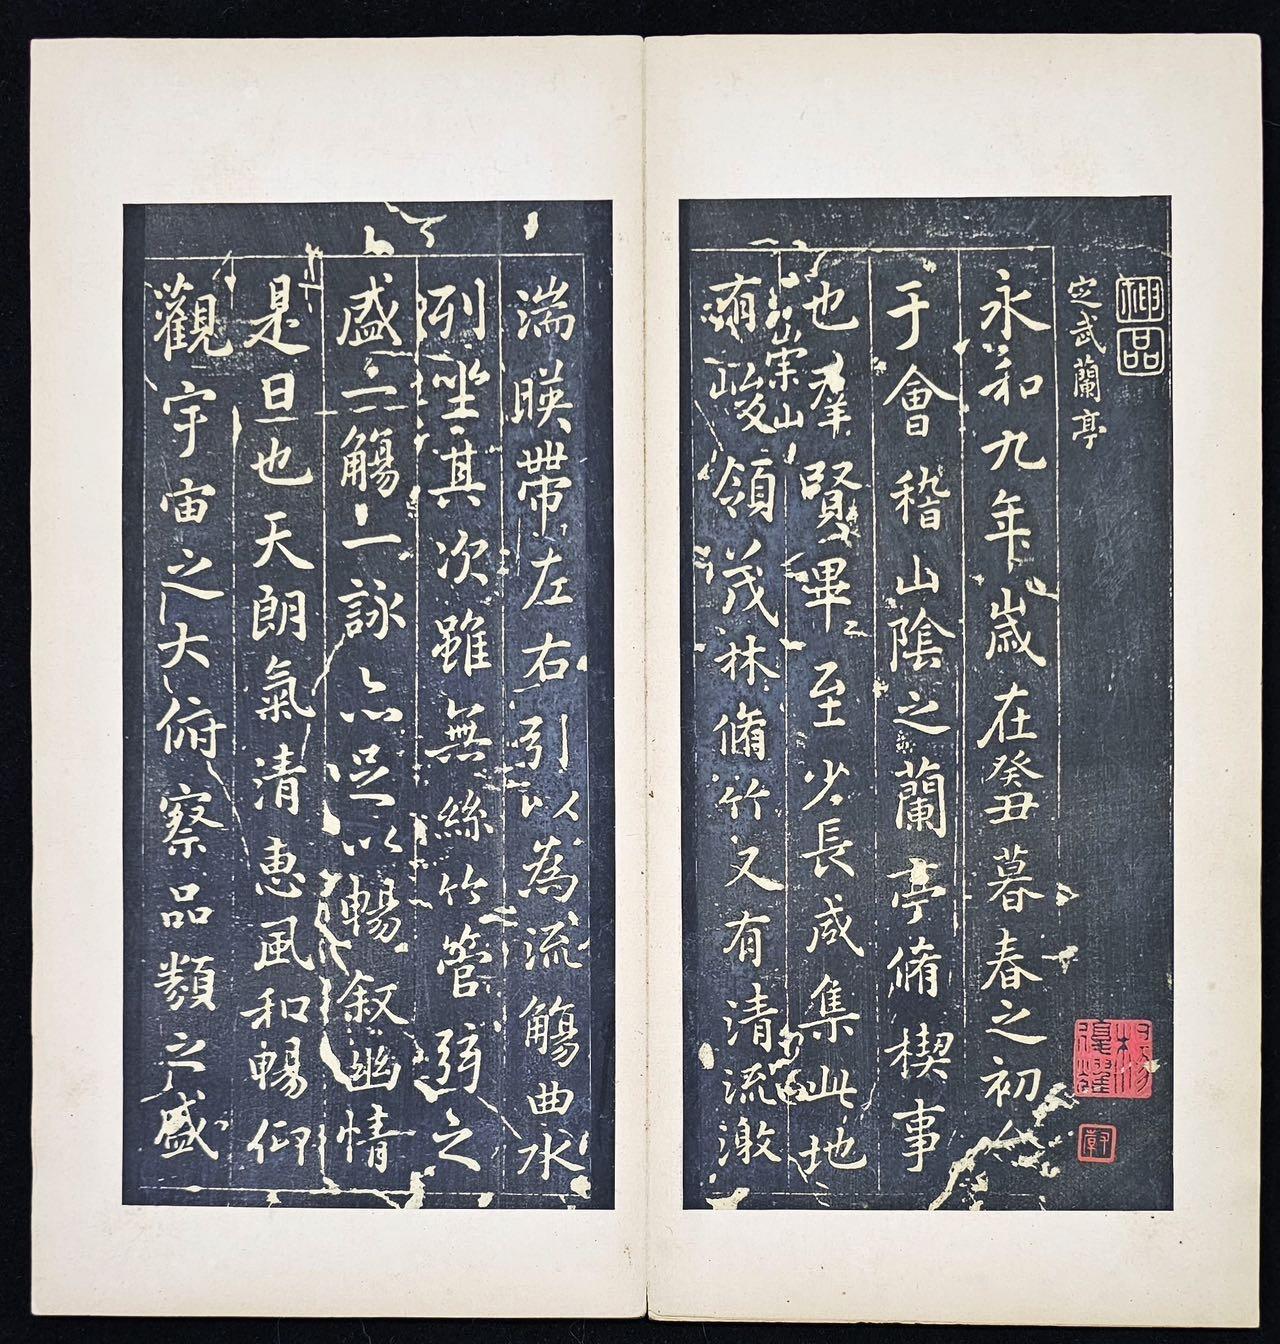 神品
定武蘭亭
永和九年歲在癸丑暮春之初會
于會稽山陰之蘭亭脩禊事
也羣賢畢至少長咸集此地
有崇山峻領茂林脩竹又有清流激
湍暎帶左右引以為流觴曲水
列坐其次雖無絲竹管弦之
盛一觴一詠亦足以暢叙幽情
是日也天朗氣清惠風和暢仰
觀宇宙之大俯察品類之盛